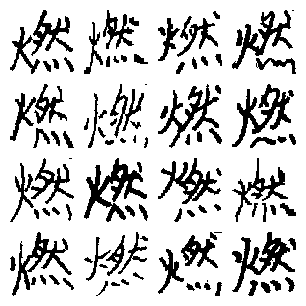 燃燃燃燃
燃燃燃燃
燃燃燃燃
燃燃燃燃